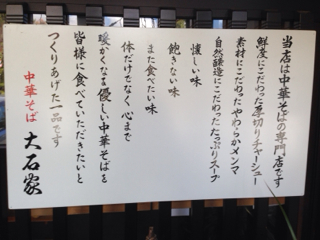 当店は中華そばの専門店です
鮮度にこだわった厚切りチャーシュー
素材にこだわったやわらかメンマ
自然醸造にこだわったたっぷりスープ
懐しい味
飽きない味
また食べたい味
体だけでなく心まで
暖かくなる優しい中華そばを
皆様に食べていただきたいと
つくりあげた一品です
中華そば 大石家